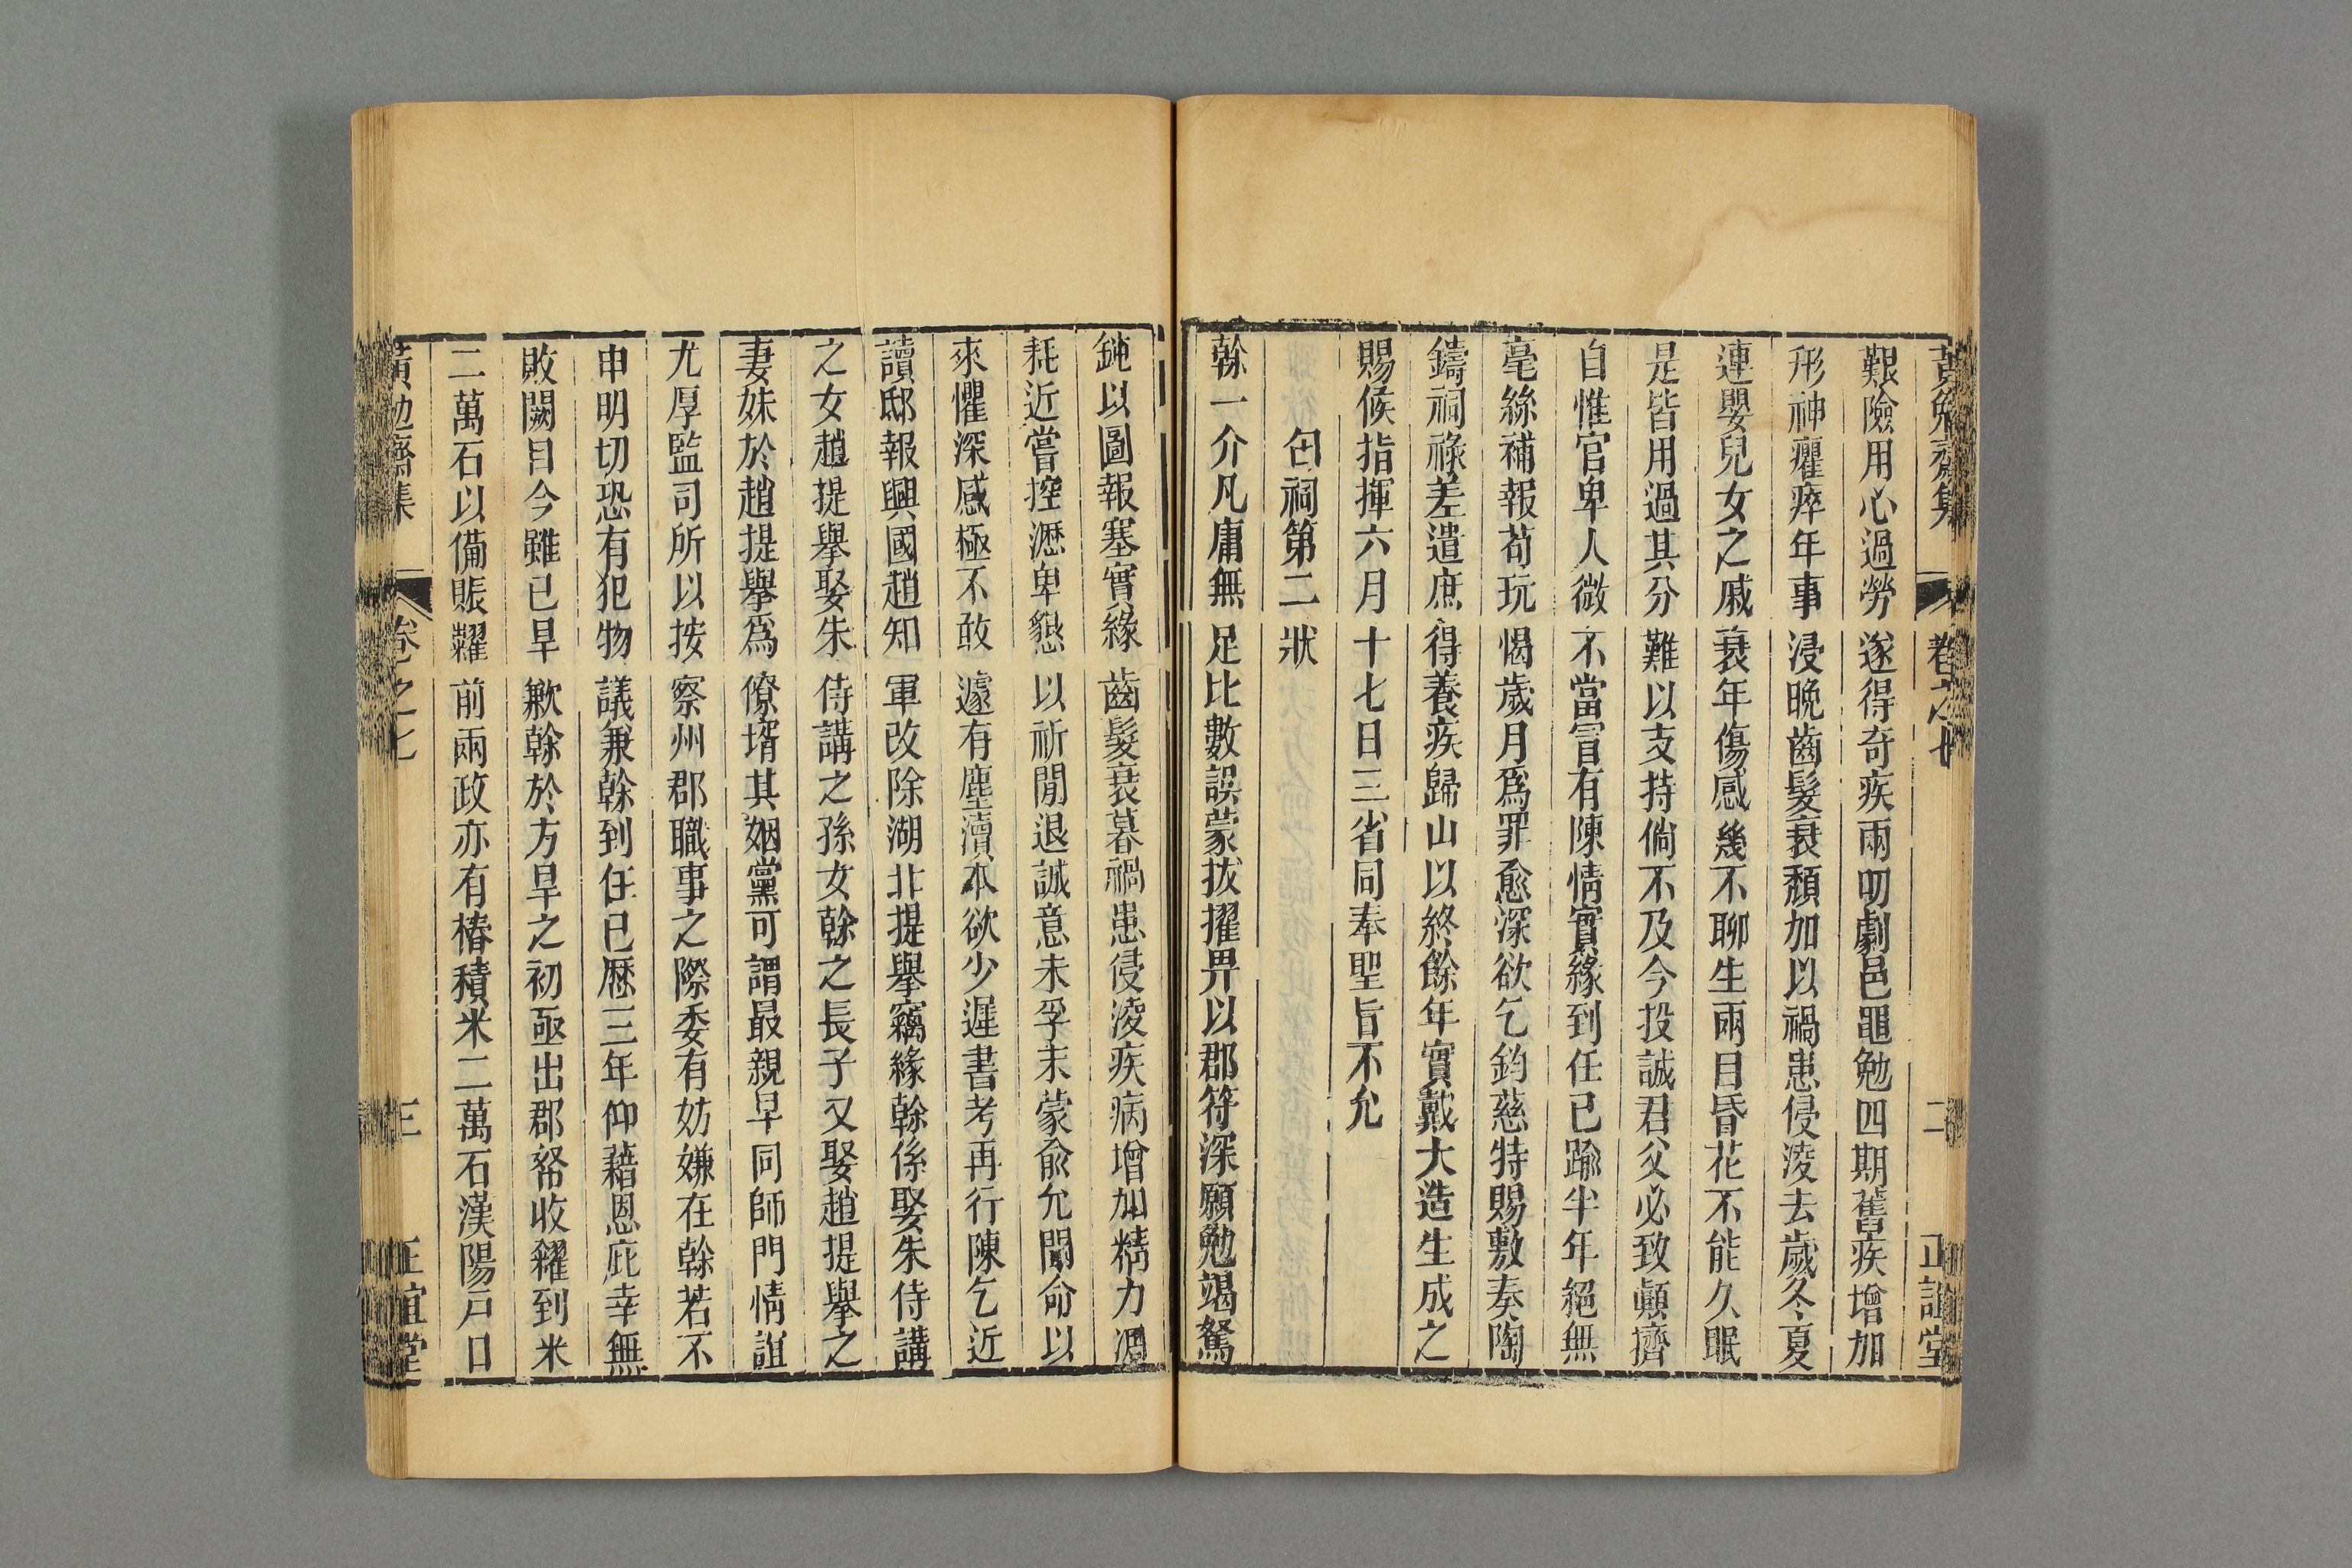 黃勉齋集 卷之七 二 正誼堂
艱險用心過勞遂得奇疾兩叨劇邑黽勉四期舊疾增加
形神癯瘁年事浸晩齒髮衰頹加以禍患侵淩去歲冬夏
連嬰兒女之戚衰年傷感幾不聊生兩目昏花不能久眠
是皆用過其分難以支持倘不及今投誠君父必致顚擠
自惟官卑人微不當冒有陳情實緣到任已踰半年絕無
毫絲補報苟玩愒歲月爲罪愈深欲乞鈞慈特賜敷奏陶
鑄祠祿差遣庶得養疾歸山以終餘年實戴大造生成之
賜候指揮六月十七日三省同奉聖旨不允
匄祠第二狀
榦一介凡庸無足比數誤蒙拔擢畀以郡符深願勉竭駑
鈍以圖報塞實緣齒髮衰暮禍患侵淩疾病增加精力凋
耗近嘗控瀝卑懇以祈閒退誠意未孚未蒙兪允聞命以
來懼深感極不敢遽有塵瀆本欲少遲書考再行陳乞近
讀邸報興國趙知軍改除湖北提舉竊緣榦係娶朱侍講
之女趙提舉娶朱侍講之孫女榦之長子又娶趙提舉之
妻妹於趙提舉爲僚壻其姻黨可謂最親早同師門情誼
尤厚監司所以按察州郡職事之際委有妨嫌在榦若不
申明切恐有犯物議兼榦到任已歷三年仰藉恩庇幸無
敗闕目今雖已旱歉榦於方旱之初亟出郡帑收糴到米
二萬石以備賑糶前兩政亦有樁積米二萬石漢陽戸口
黃勉齋集 卷之七 三 正誼堂